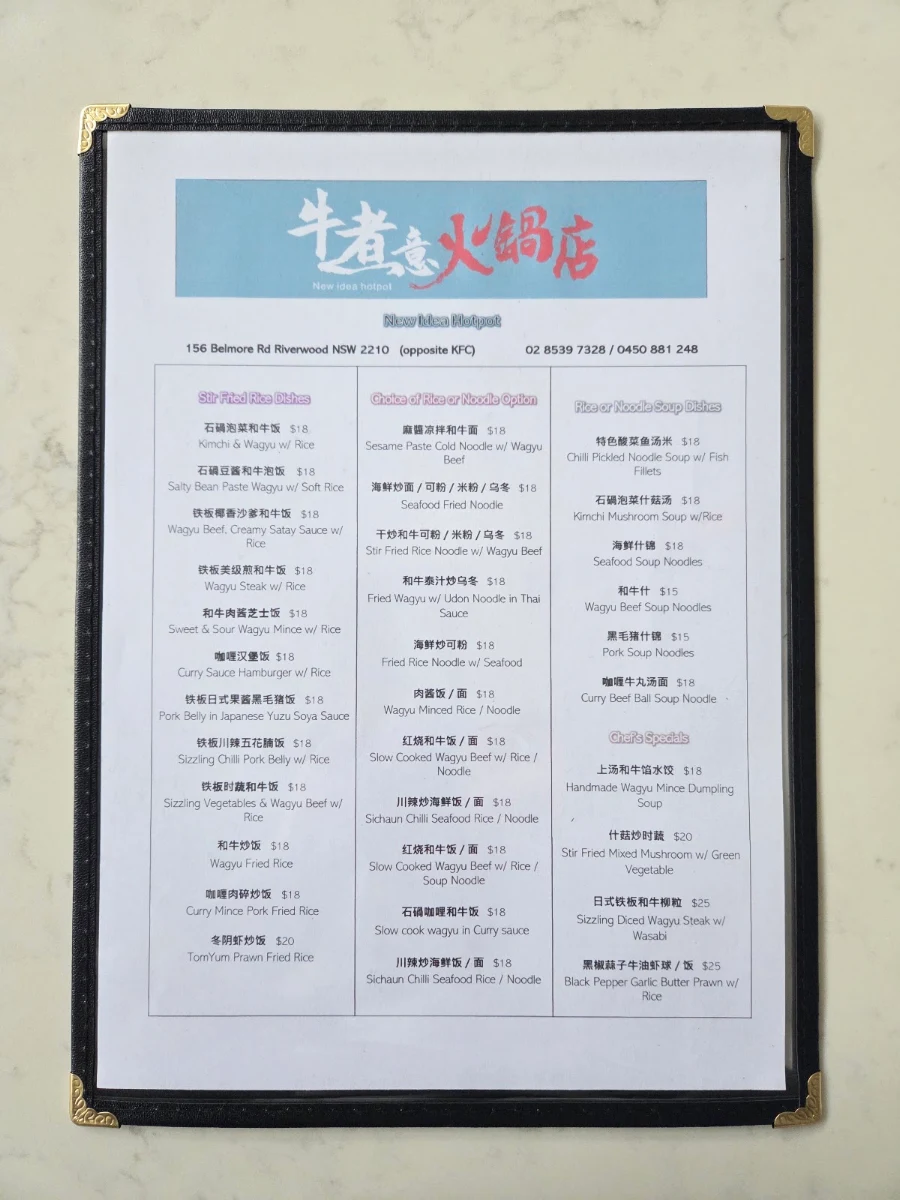 牛煮意火鍋店
New idea hotpot
New Idea Hotpot
156 Belmore Rd Riverwood NSW 2210 (opposite KFC) 02 8539 7328 / 0450 881 248
Stir Fried Rice Dishes
石锅泡菜和牛饭 $18
Kimchi & Wagyu w/ Rice
石锅豆酱和牛泡饭 $18
Salty Bean Paste Wagyu w/ Soft Rice
铁板椰香沙爹和牛饭 $18
Wagyu Beef, Creamy Satay Sauce w/
Rice
铁板美级煎和牛饭 $18
Wagyu Steak w/ Rice
和牛肉酱芝士饭 $18
Sweet & Sour Wagyu Mince w/ Rice
咖喱汉堡饭 $18
Curry Sauce Hamburger w/ Rice
铁板日式果酱黑毛猪饭 $18
Pork Belly in Japanese Yuzu Soya Sauce
铁板川辣五花腩饭 $18
Sizzling Chilli Pork Belly w/ Rice
铁板时蔬和牛饭 $18
Sizzling Vegetables & Wagyu Beef w/
Rice
和牛炒饭 $18
Wagyu Fried Rice
咖喱肉碎炒饭 $18
Curry Mince Pork Fried Rice
冬阴虾炒饭 $20
TomYum Prawn Fried Rice
Choice of Rice or Noodle Option
麻醬凉拌和牛面 $18
Sesame Paste Cold Noodle w/ Wagyu
Beef
海鲜炒面 / 可粉 / 米粉 / 乌冬 $18
Seafood Fried Noodle
干炒和牛可粉 / 米粉 / 乌冬 $18
Stir Fried Rice Noodle w/ Wagyu Beef
和牛泰汁炒乌冬 $18
Fried Wagyu w/ Udon Noodle in Thai
Sauce
海鲜炒可粉 $18
Fried Rice Noodle w/ Seafood
肉酱饭 / 面 $18
Wagyu Minced Rice / Noodle
红烧和牛饭 / 面 $18
Slow Cooked Wagyu Beef w/ Rice /
Noodle
川辣炒海鲜饭 / 面 $18
Sichaun Chilli Seafood Rice / Noodle
红烧和牛饭 / 面 $18
Slow Cooked Wagyu Beef w/ Rice /
Soup Noodle
石锅咖喱和牛饭 $18
Slow cook wagyu in Curry sauce
川辣炒海鲜饭 / 面 $18
Sichaun Chilli Seafood Rice / Noodle
Rice or Noodle Soup Dishes
特色酸菜鱼汤米 $18
Chilli Pickled Noodle Soup w/ Fish
Fillets
石锅泡菜什菇汤 $18
Kimchi Mushroom Soup w/Rice
海鲜什锦 $18
Seafood Soup Noodles
和牛什 $15
Wagyu Beef Soup Noodles
黑毛猪什锦 $15
Pork Soup Noodles
咖喱牛丸汤面 $18
Curry Beef Ball Soup Noodle
Chef's Specials
上汤和牛馅水饺 $18
Handmade Wagyu Mince Dumpling
Soup
什菇炒时蔬 $20
Stir Fried Mixed Mushroom w/ Green
Vegetable
日式铁板和牛柳粒 $25
Sizzling Diced Wagyu Steak w/
Wasabi
黑椒蒜子牛油虾球 / 饭 $25
Black Pepper Garlic Butter Prawn w/
Rice